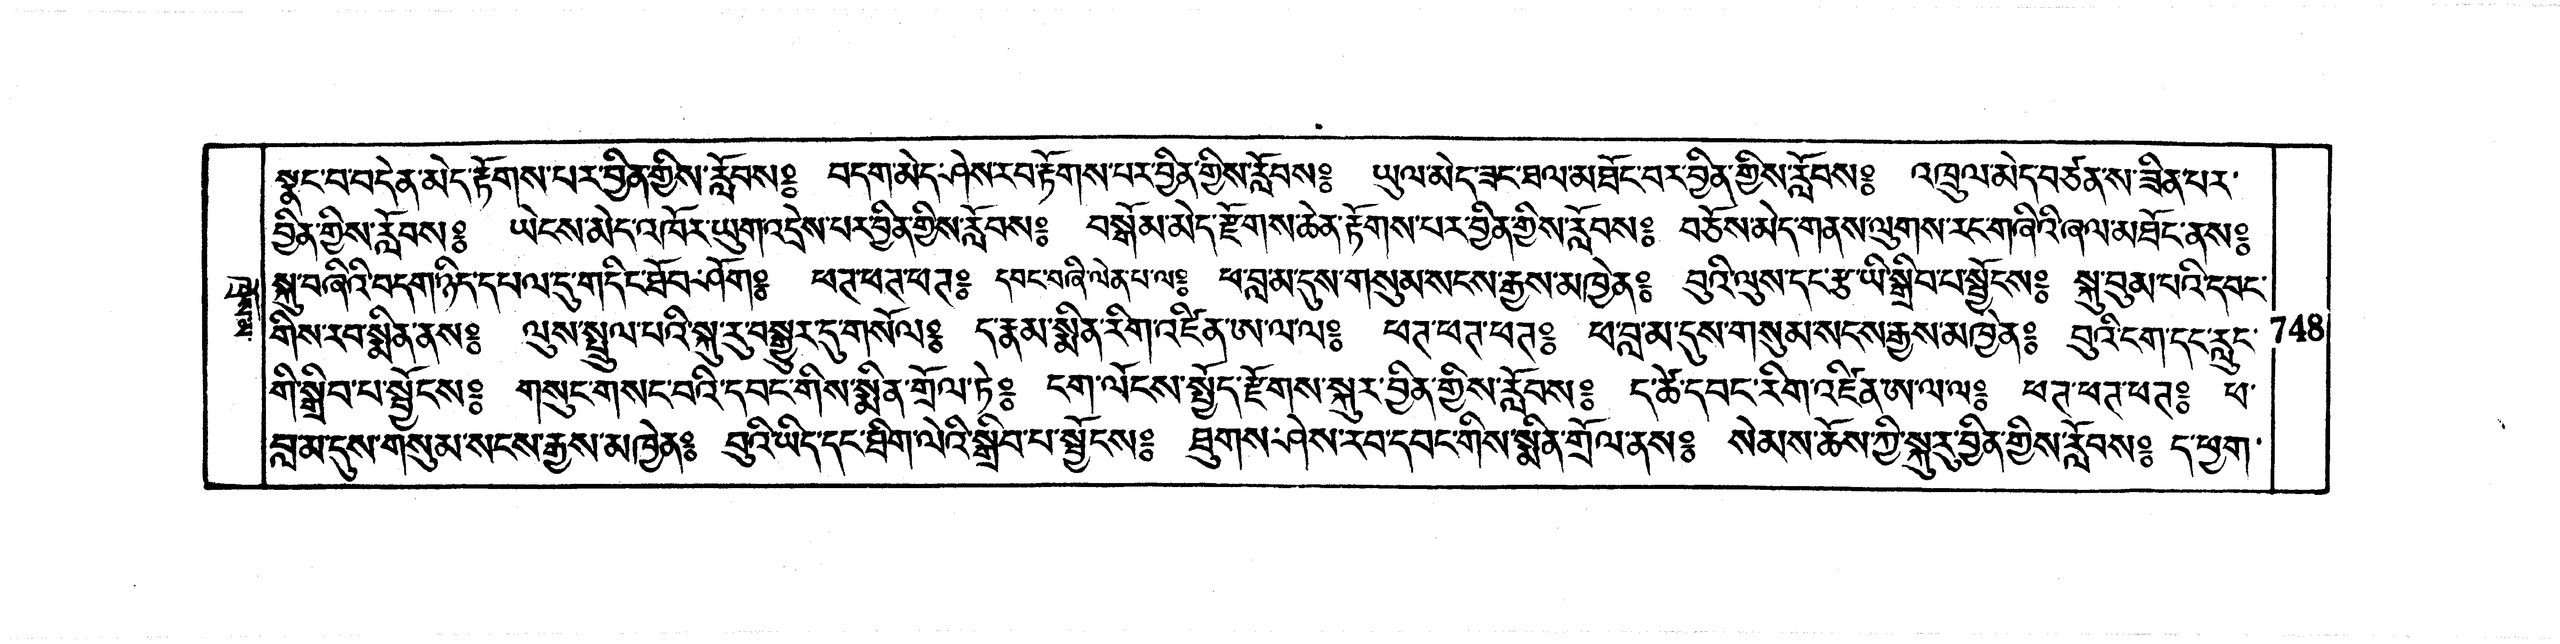 སྣང་བ་བདེན་མེད་རྟོགས་པར་བྱིན་གྱིས་རློབས༔ བདག་མེད་ཤེས་རབ་རྟོགས་པར་བྱིན་གྱིས་རློབས༔ ཡུལ་མེད་ཟང་ཐལ་མཐོང་བར་བྱིན་གྱིས་རློབས༔ འཁྲུལ་མེད་བཙན་ས་ཟིན་པར་
བྱིན་གྱིས་རློབས༔ ཡེངས་མེད་འཁོར་ཡུག་འདྲེས་པར་བྱིན་གྱིས་རློབས༔ བསྒོམ་མེད་རྫོགས་ཆེན་རྟོགས་པར་བྱིན་གྱིས་རློབས༔ བཅོས་མེད་གནས་ལུགས་རང་གཞིའི་ཞལ་མཐོང་ནས༔
སྐུ་བཞིའི་བདག་ཉིད་དཔལ་དུ་གདིང་ཐོབ་ཤོག༔ ཕཊ་ཕཊ་ཕཊ༔ དབང་བཞི་ལེན་པ་ལ༔ ཕ་བླ་མ་དུས་གསུམ་སངས་རྒྱས་མཁྱེན༔ བུའི་ལུས་དང་རྩ་ཡི་སྒྲིབ་པ་སྦྱོངས༔ སྐུ་བུམ་པའི་དབང་
གིས་རབ་སྨིན་ནས༔ ལུས་སྤྲུལ་པའི་སྐུ་རུ་བསྒྱུར་དུ་གསོལ༔ ད་རྣམ་སྨིན་རིག་འཛིན་ཨ་ལ་ལ༔ ཕཊ་ཕཊ་ཕཊ༔ ཕ་བླ་མ་དུས་གསུམ་སངས་རྒྱས་མཁྱེན༔ བུའི་ངག་དང་རླུང་
གི་སྒྲིབ་པ་སྦྱོངས༔ གསུང་གསང་བའི་དབང་གིས་སྨིན་གྲོལ་ཏེ༔ ངག་ལོངས་སྤྱོད་རྫོགས་སྐུར་བྱིན་གྱིས་རློབས༔ ད་ཚེ་དབང་རིག་འཛིན་ཨ་ལ་ལ༔ ཕཊ་ཕཊ་ཕཊ༔ ཕ་
བླ་མ་དུས་གསུམ་སངས་རྒྱས་མཁྱེན༔ བུའི་ཡིད་དང་ཐིག་ལེའི་སྒྲིབ་པ་སྦྱོངས༔ ཐུགས་ཤེས་རབ་དབང་གིས་སྨིན་གྲོལ་ནས༔ སེམས་ཆོས་ཀྱི་སྐུ་རུ་བྱིན་གྱིས་རློབས༔ ད་ཕྱག་
748